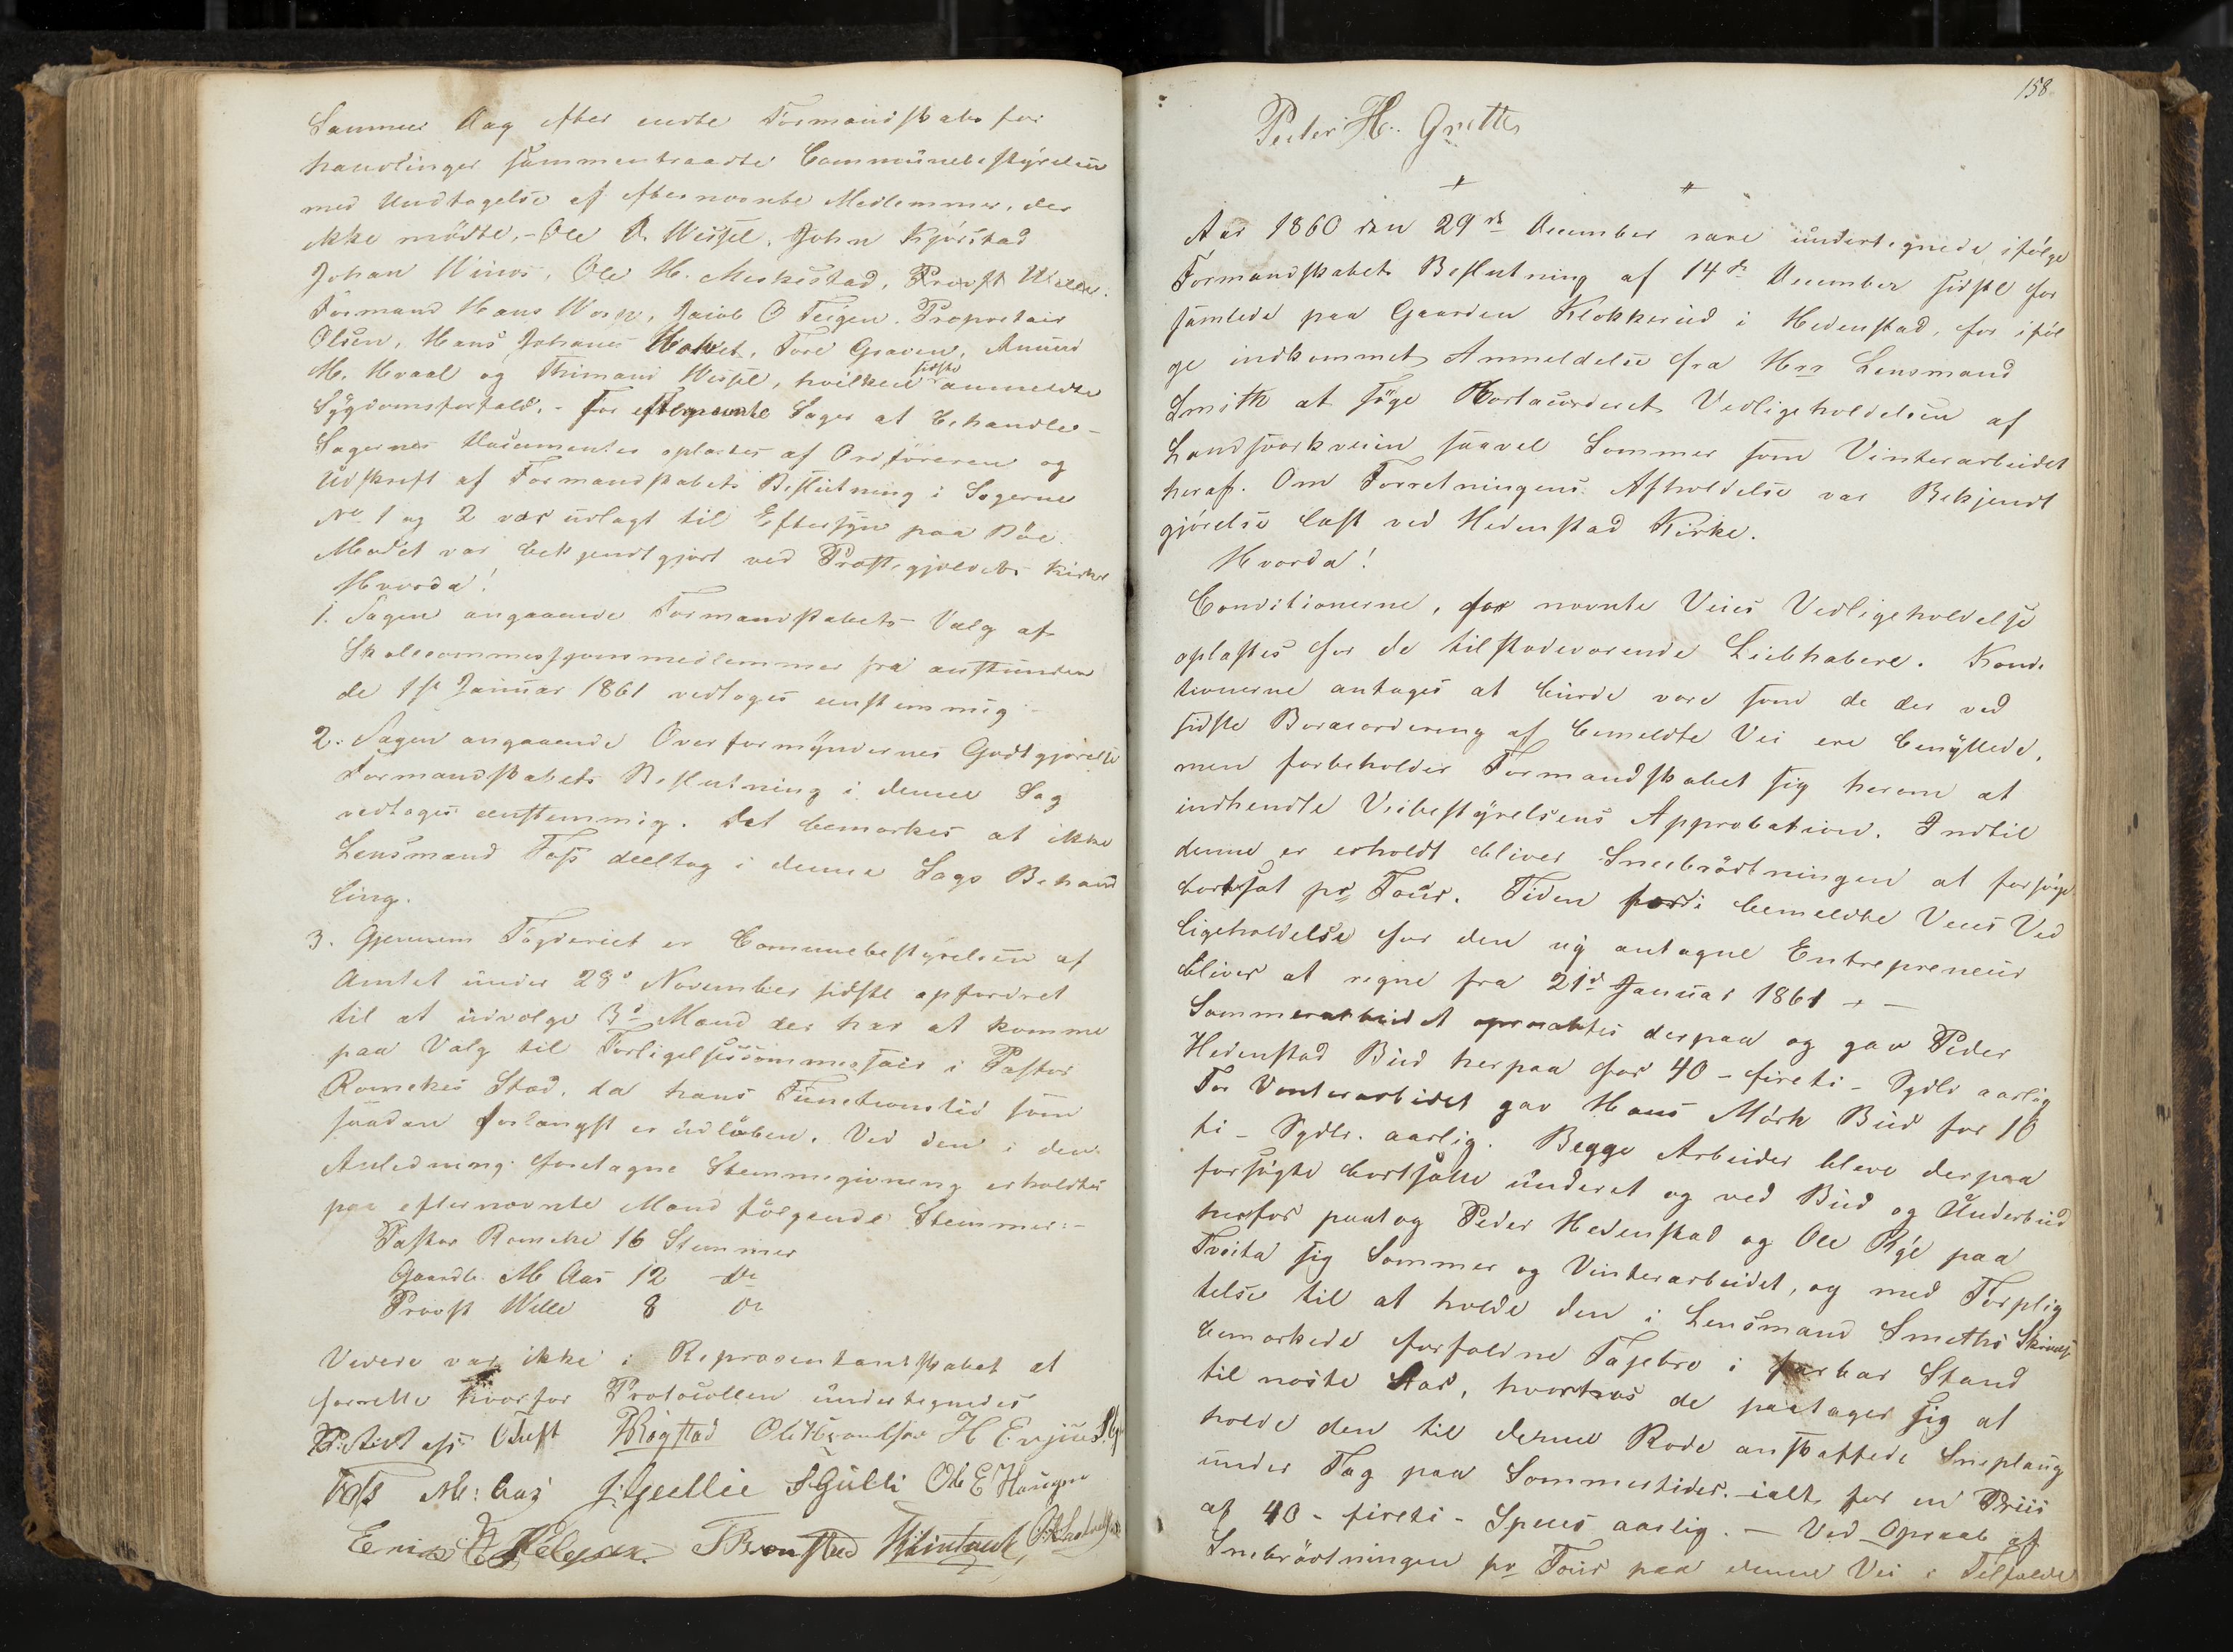 Samme Dag efter endte Formandskabs for
handlinger sammentraadte Communebestyrelsen
med Undtagelse af efternævnte Medlemmer, der
ikke mödte, - Ole Wessel, John Kjørstad
Johan Ole H. Provst Wille
Formand Hans Jacob O Teigen. Proprietair
Olsen, Hans Johannes Tore Graven, Amund
M. Hvaal og Wessel, hvilken sidste anmeldte
Sygdomsforfald. - For efternævnte Sager at behandles -
Sagernes Documenter oplæstes af Ordføreren og
Udskrift af Formandskabets Beslutning i Sagerne
No 1 og 2 var udlagt til Eftersyn paa
Mødet var bekjendtgjort ved Præstegjeldets Kirker
Hvorda!
1. Sagen angaaende Formandskabets Valg af
Skolecommissjonsmedlemmer fra anstunden
de 1ste Januar 1861 vedtoges eenstemmig -
2. Sagen angaaende Overformyndernes Godtgjørelse
Formandskabets Beslutning i denne Sag
vedtoges eenstemmig. Det bemærkes at ikke
Lensmand Foss deeltog i denne Sags Behand
ling.
3. Gjennem Fogderiet er Communebestyrelsen af
Amtet under 28de November sidstl opfordret
til at udvælge 3de Mænd der har at komme
paa Valg til Forligelsescommissair i Pastor
Ramckes Sted, da hans Functionstid som
saadan forlængst er udløben. Ved den i den
Anledning foretagne Stemmegivning erholdtes
paa efternævnte Mænd følgende Stemmer: -
Pastor Ramcke 16 Stemmer
Gaardbr. M Aas 12 do
Provst Wille 8 do
Videre var ikke i Repræsentantskabet at
forrette hvorfor Protocollen undertegnedes
Foss M: Aas Ole E Haugen
Peder H. Grette
158
Aar 1860 den 29de December vare undertegnede, ifølge
Formandskabets Beslutning af 14de December sidstl for
samlede paa Gaarden Klokkerud i Hedenstad, for iføl
ge indkommet Anmeldelse fra Hrr Lensmand
Smith at søge bortaccorderet Vedligeholdelsen af
Landsværkveien saavel Sommer som Vinterarbeidet
heraf. Om Forretningens Afholdelse var Bekjendt
gjørelse læst ved Hedenstad Kirke.
Hvorda!
Conditionerne, for nævnte Veies Vedligeholdelse
oplæstes for de tilstedeværende Liebhabere. Kondi
tionerne antages at burde være som de der ved
sidste Bortaccordering af bemeldte Vei ere benyttede,
men forbeholder Formandskabet sig herom at
indhendte Veibestyrelsens Approbation. Indtil
denne er erholdt bliver Sneebrødtningen at forsøge
bortsat pr Tour. Tiden bemeldte Veies Ved
ligeholdelse for den ny antagne Entrepreneur
bliver at regne fra 21de Januar 1861 -
Sommerarbeidet opraabtes derpaa og gav Peder
Hedenstad Bud herpaa for 40 - fireti - Spdlr aarlig
For Vinterarbeidet gav Hans Mörk Bud for 10
ti - Spdlr. aarlig. Begge Arbeider bleve derpaa
forsögte bortsatte underet og ved Bud og Underbud
herfor paatog Peder Hedenstad og Ole Rye paa
Tveita sig Sommer og Vinterarbeidet, og med Forplig
telse til at holde den i Lensmand Smiths Skrivelse
bemærkede forfaldne Tajebro i farbar Stand
til næste Aar, de paatager sig at
holde den til denne Rode anskaffede Sneplaug
under Tag paa Sommertider. - ialt for en Priis
af 40 - fireti - Species aarlig. - Ved Opraab af
Snebrödtningen pr Tour paa denne Vei i Tilfælde